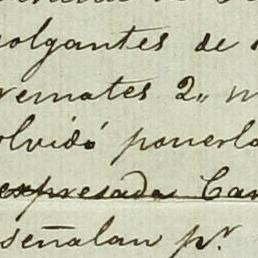 colgantes de
remates 2,, m
olvidó ponerlo
expresada Car
señalan pr.